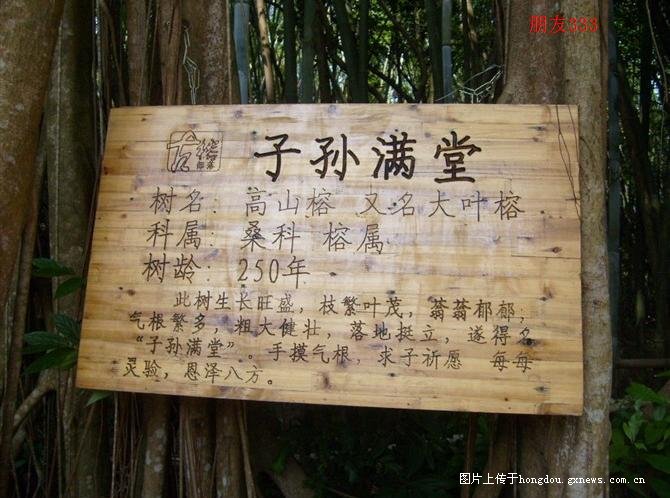 朋友333
古榕
部落
子孙满堂
树名：高山榕 又名大叶榕
科属：桑科 榕属
树龄：250年
此树生长旺盛，枝繁叶茂，蓊蓊郁郁，
气根繁多，粗大健壮，落地挺立，遂得名
“子孙满堂”。手摸气根，求子祈愿 每每
灵验，恩泽八方。
图片上传于hongdou.gxnews.com.cn